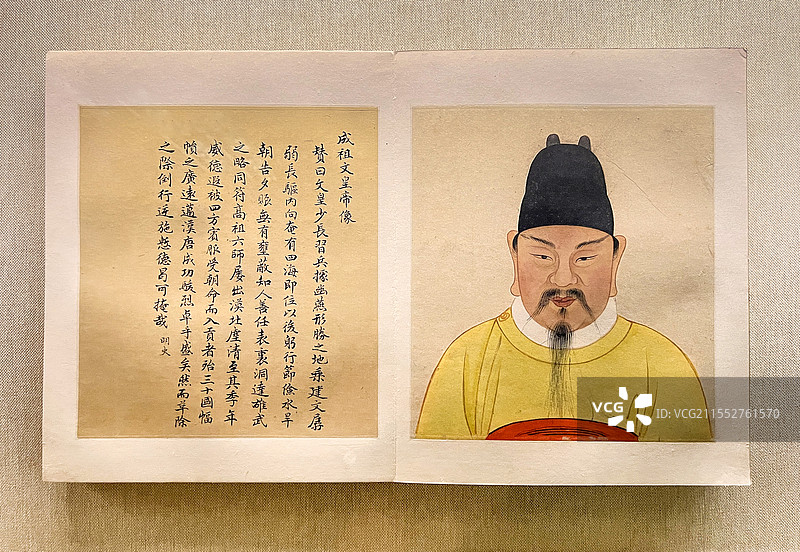 成祖文皇帝像
贊曰文皇少長習兵據幽燕形勝之地乘建文孱
弱長驅內向奄有四海即位以後躬行節儉水旱
朝告夕賑無有壅蔽知人善任表裏洞達雄武
之略同符高祖六師屢出漠北塵清至其季年
威德遐被四方賓服受朝命而入貢者殆三十國幅
幀之廣遠邁漢唐成功駿烈卓乎盛矣然而革除
之際倒行逆施慙德曷可掩哉 明史
VCG
VCG ID: VCG211552761570